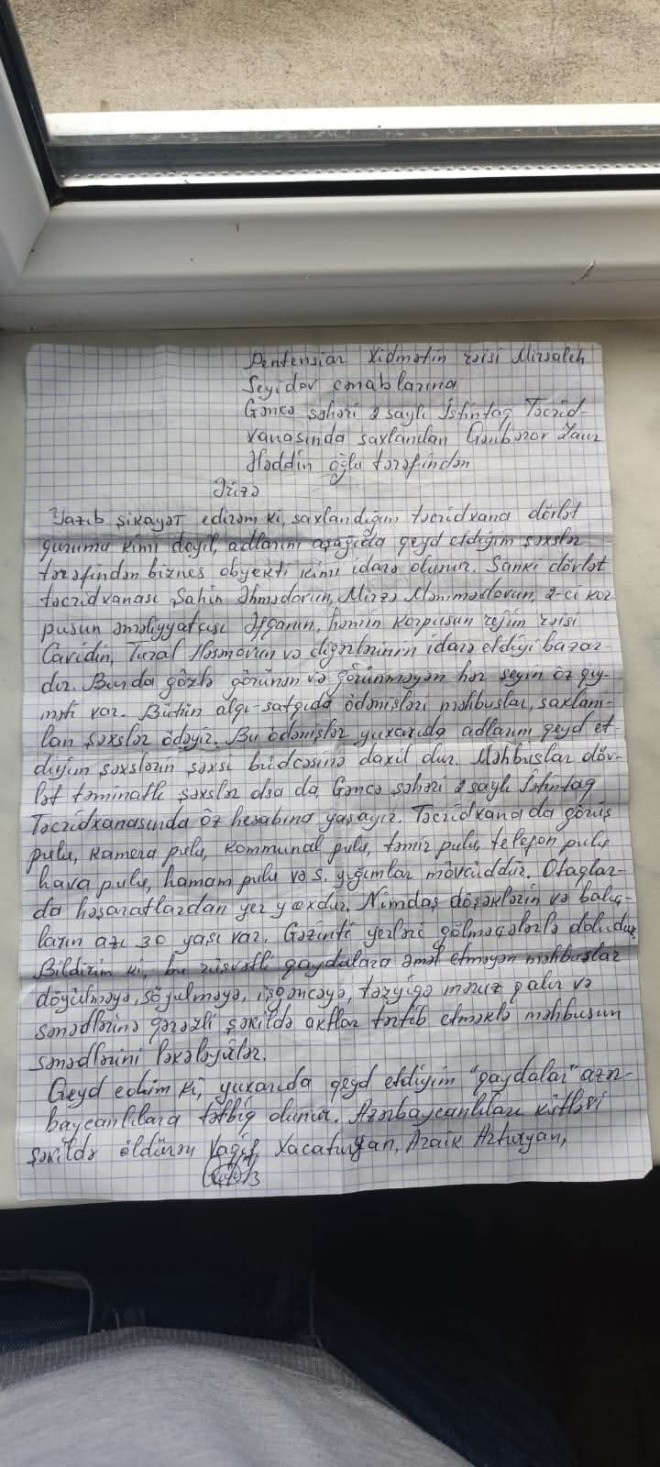 Pentensiar Xidmətin rəisi Mirsaleh
Seyidov cənablarına
Gəncə şəhəri 2 saylı İstintag Təcrid-
xanasında saxlanılan Gənbərov Zaur
Həddin oğlu tərəfindən
Ərizə
Yazıb şikayət edirəm ki, saxlandığım təcridxana dövlət
qurumu kimi deyil, adlarını aşağıda qeyd etdiyim şəxslər
tərəfindən biznes obyekti kimi idarə olunur. Sanki dövlət
təcridxanası Şahin Əhmədovun, Mirzə Məmmədovun, 2-ci kor-
pusun əməliyyatçısı Əfqanın, həmin korpusun rejim rəisi
Cavidin, Tural Osmovun və digərlərinin idarə etdiyi bazar-
dır. Burda gözlə görünən və görünməyən hər şeyin öz qiy-
məti var. Bütün alğı-satğıda ödənişləri məhbuslar, saxlanı-
lan şəxslər ödəyir. Bu ödənişlər yuxarıda adlarını qeyd et
diyim şəxslərin şəxsi büdcəsinə daxil dur. Məhbuslar döv-
lət təminatlı şəxslər olsa da, Gəncə şəhəri 2 saylı İstintag
Təcridxanasında öz hesabına yaşayır. Təcridxanada görüş
pulu, kamera pulu, kommunal pulu, təmir pulu, telefon pulu
hava pulu, hamam pulu və s. yığımlar mövcuddur. Otaglar-
da həşaratlardan yer yoxdur. Nimdaş döşəklərin və balış-
ların azı 30 yaşı var. Gəzinti yerləri gölməçələrlə doludur.
Bildirim ki, bu rüşvətli qaydalara əməl etməyən məhbuslar
döyülməyə, söyülməyə, işgəncəyə, təzyiqə məruz qalır və
sənədlərinə qərəzli şəkildə aktlar tərtib etməklə məhbusun
sənədlərini ləkələyirlər.
Qeyd edim ki, yuxarıda qeyd etdiyim "qaydalar" azər-
baycanlılara tətbiq olunur. Azərbaycanlıları kütləvi
şəkildə öldürən Vagif Xaçaturyan, Araik Arturyan,